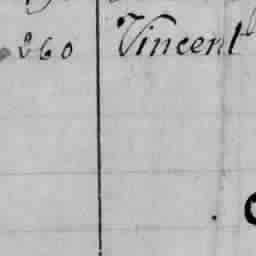 260 Vincent